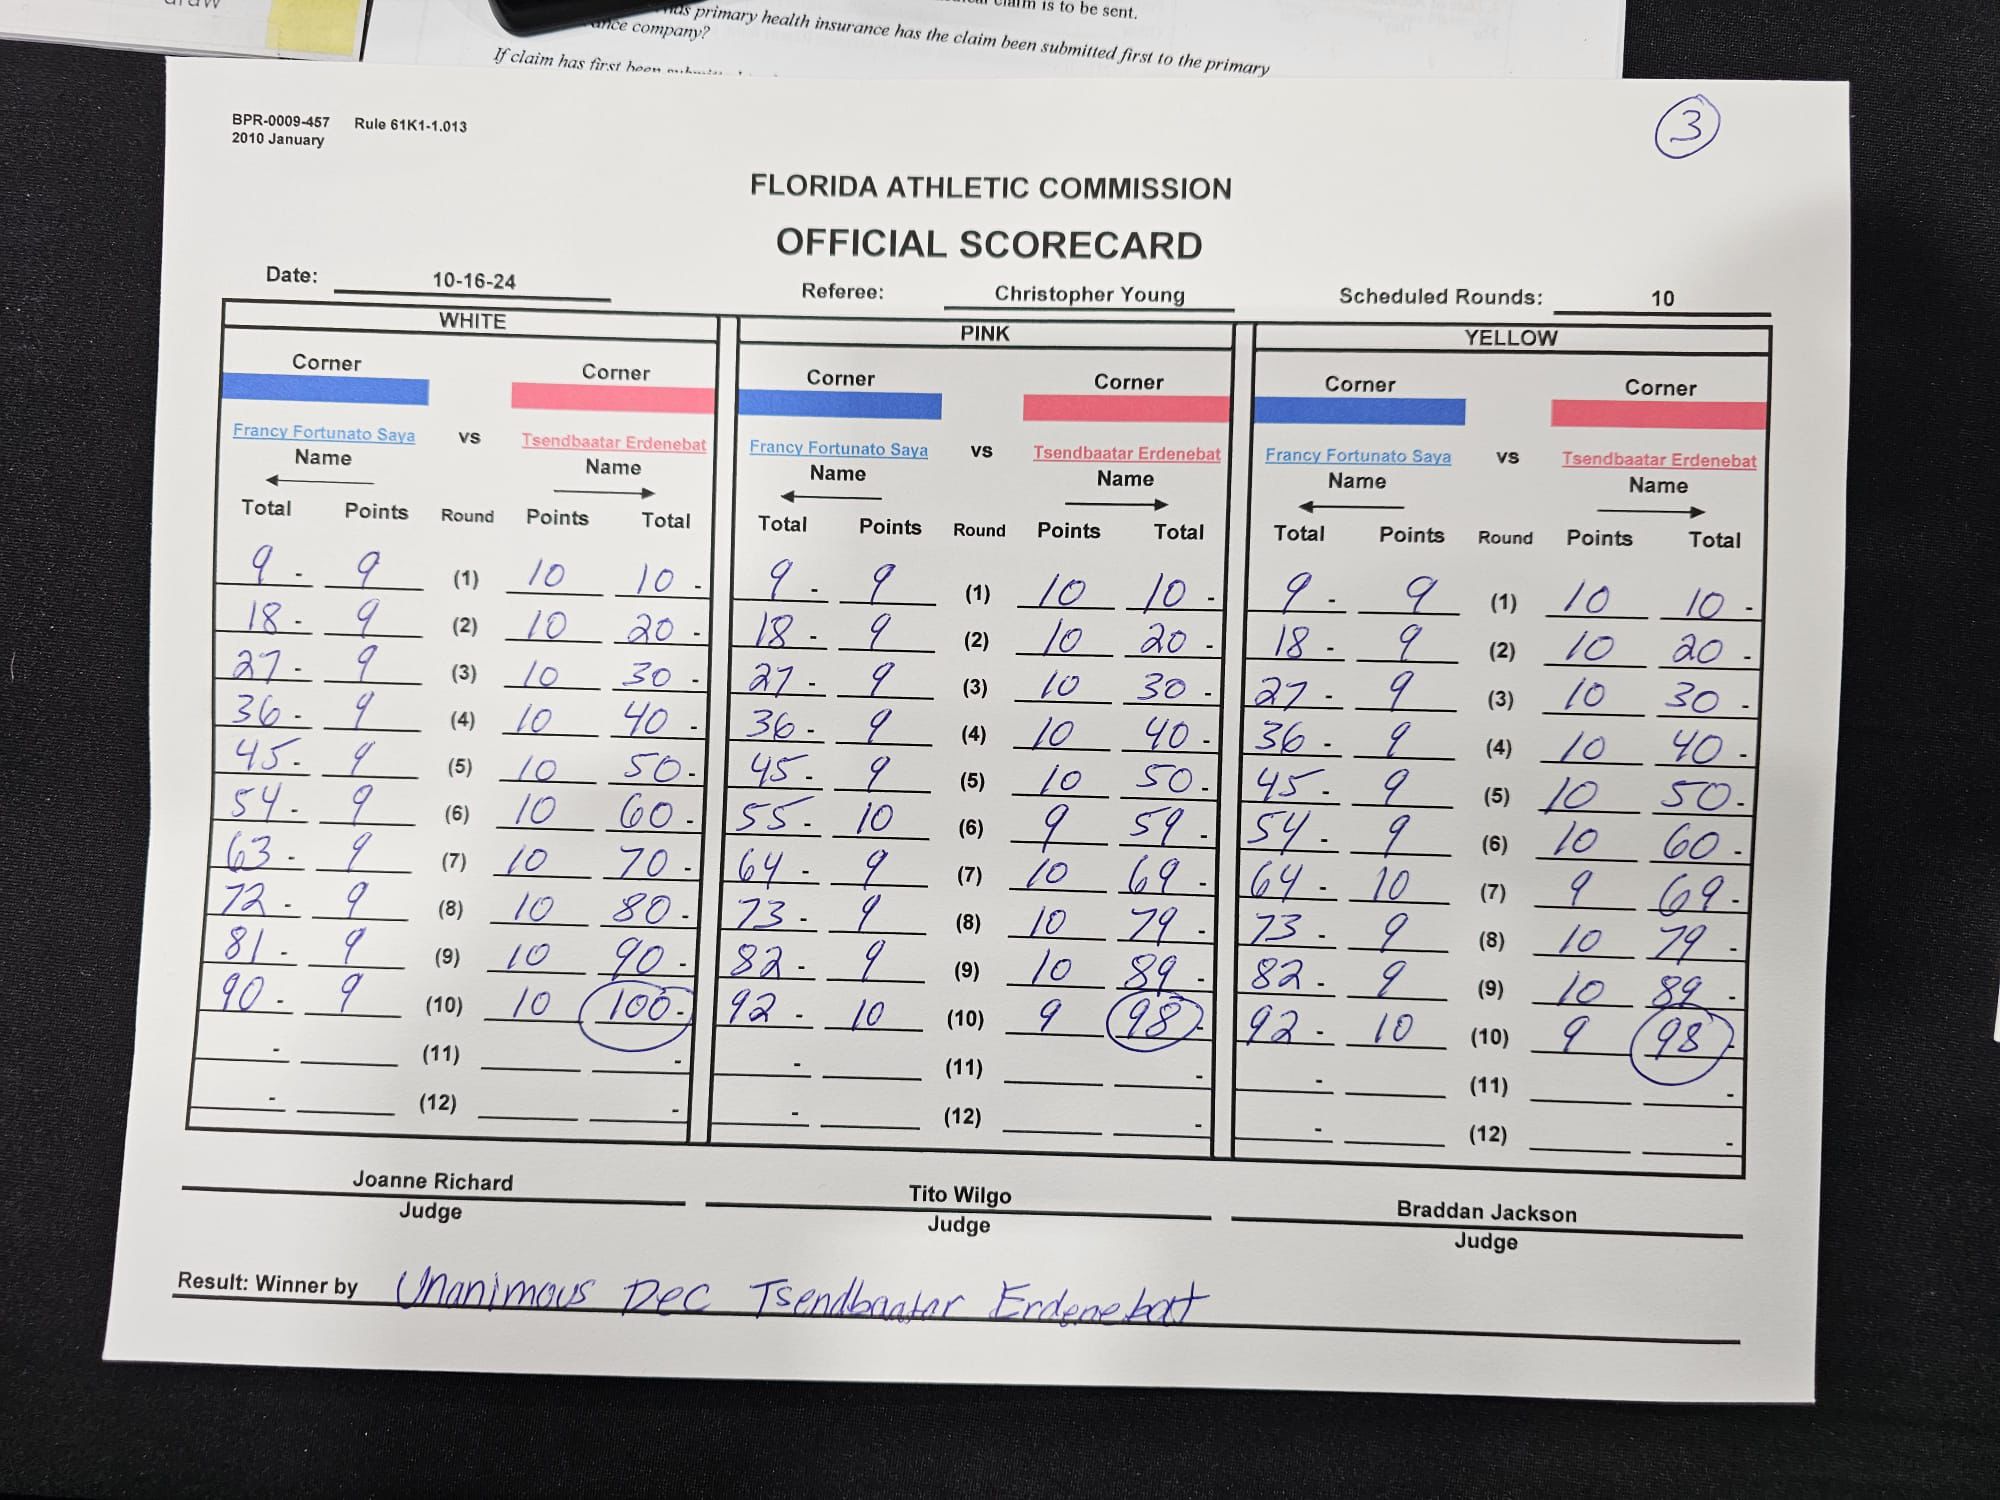 draw
claim is to be sent.
primary health insurance has the claim been submitted first to the primary
company?
If claim has first been
BPR-0009-457 Rule 61K1-1.013
2010 January
3
FLORIDA ATHLETIC COMMISSION
OFFICIAL SCORECARD
Date: 10-16-24 Referee: Christopher Young Scheduled Rounds: 10
WHITE PINK YELLOW
Corner Corner Corner Corner Corner Corner
Francy Fortunato Saya vs Tsendbaatar Erdenebat Francy Fortunato Saya vs Tsendbaatar Erdenebat Francy Fortunato Saya vs Tsendbaatar Erdenebat
Name Name Name Name Name Name
Total Points Round Points Total Total Points Round Points Total Total Points Round Points Total
9 - 9 (1) 10 10 - 9 - 9 (1) 10 10 - 9 - 9 (1) 10 10 -
18 - 9 (2) 10 20 - 18 - 9 (2) 10 20 - 18 - 9 (2) 10 20 -
27 - 9 (3) 10 30 - 27 - 9 (3) 10 30 - 27 - 9 (3) 10 30 -
36 - 9 (4) 10 40 - 36 - 9 (4) 10 40 - 36 - 9 (4) 10 40 -
45 - 9 (5) 10 50 - 45 - 9 (5) 10 50 - 45 - 9 (5) 10 50 -
54 - 9 (6) 10 60 - 55 - 10 (6) 9 59 - 54 - 9 (6) 10 60 -
63 - 9 (7) 10 70 - 64 - 9 (7) 10 69 - 64 - 10 (7) 9 69 -
72 - 9 (8) 10 80 - 73 - 9 (8) 10 79 - 73 - 9 (8) 10 79 -
81 - 9 (9) 10 90 - 82 - 9 (9) 10 89 - 82 - 9 (9) 10 89 -
90 - 9 (10) 10 100 - 92 - 10 (10) 9 98 - 92 - 10 (10) 9 98 -
- (11) - - (11) - - (11) -
- (12) - - (12) - - (12) -
Joanne Richard Tito Wilgo Braddan Jackson
Judge Judge Judge
Result: Winner by Unanimous Dec Tsendbaatar Erdenebat